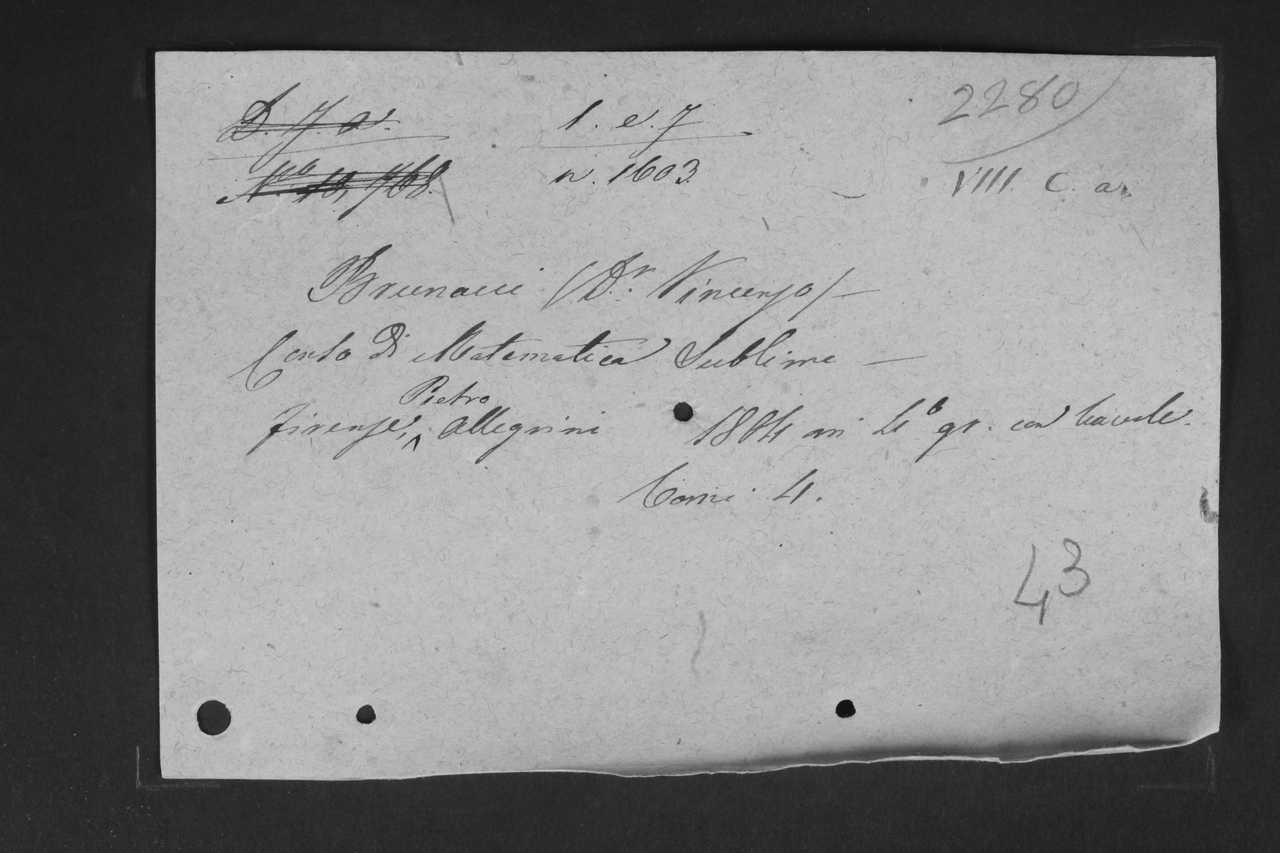 D. 7 a. 1. e. 7 2280
N.º 10,768. n. 1603. VIII. C. a.
Brunacci (D.r Vincenzo) —
Corso di Matematica Sublime —
Firenze, Pietro Allegrini 1804 in 4.º gr. con tavole.
Tomi 4.
43